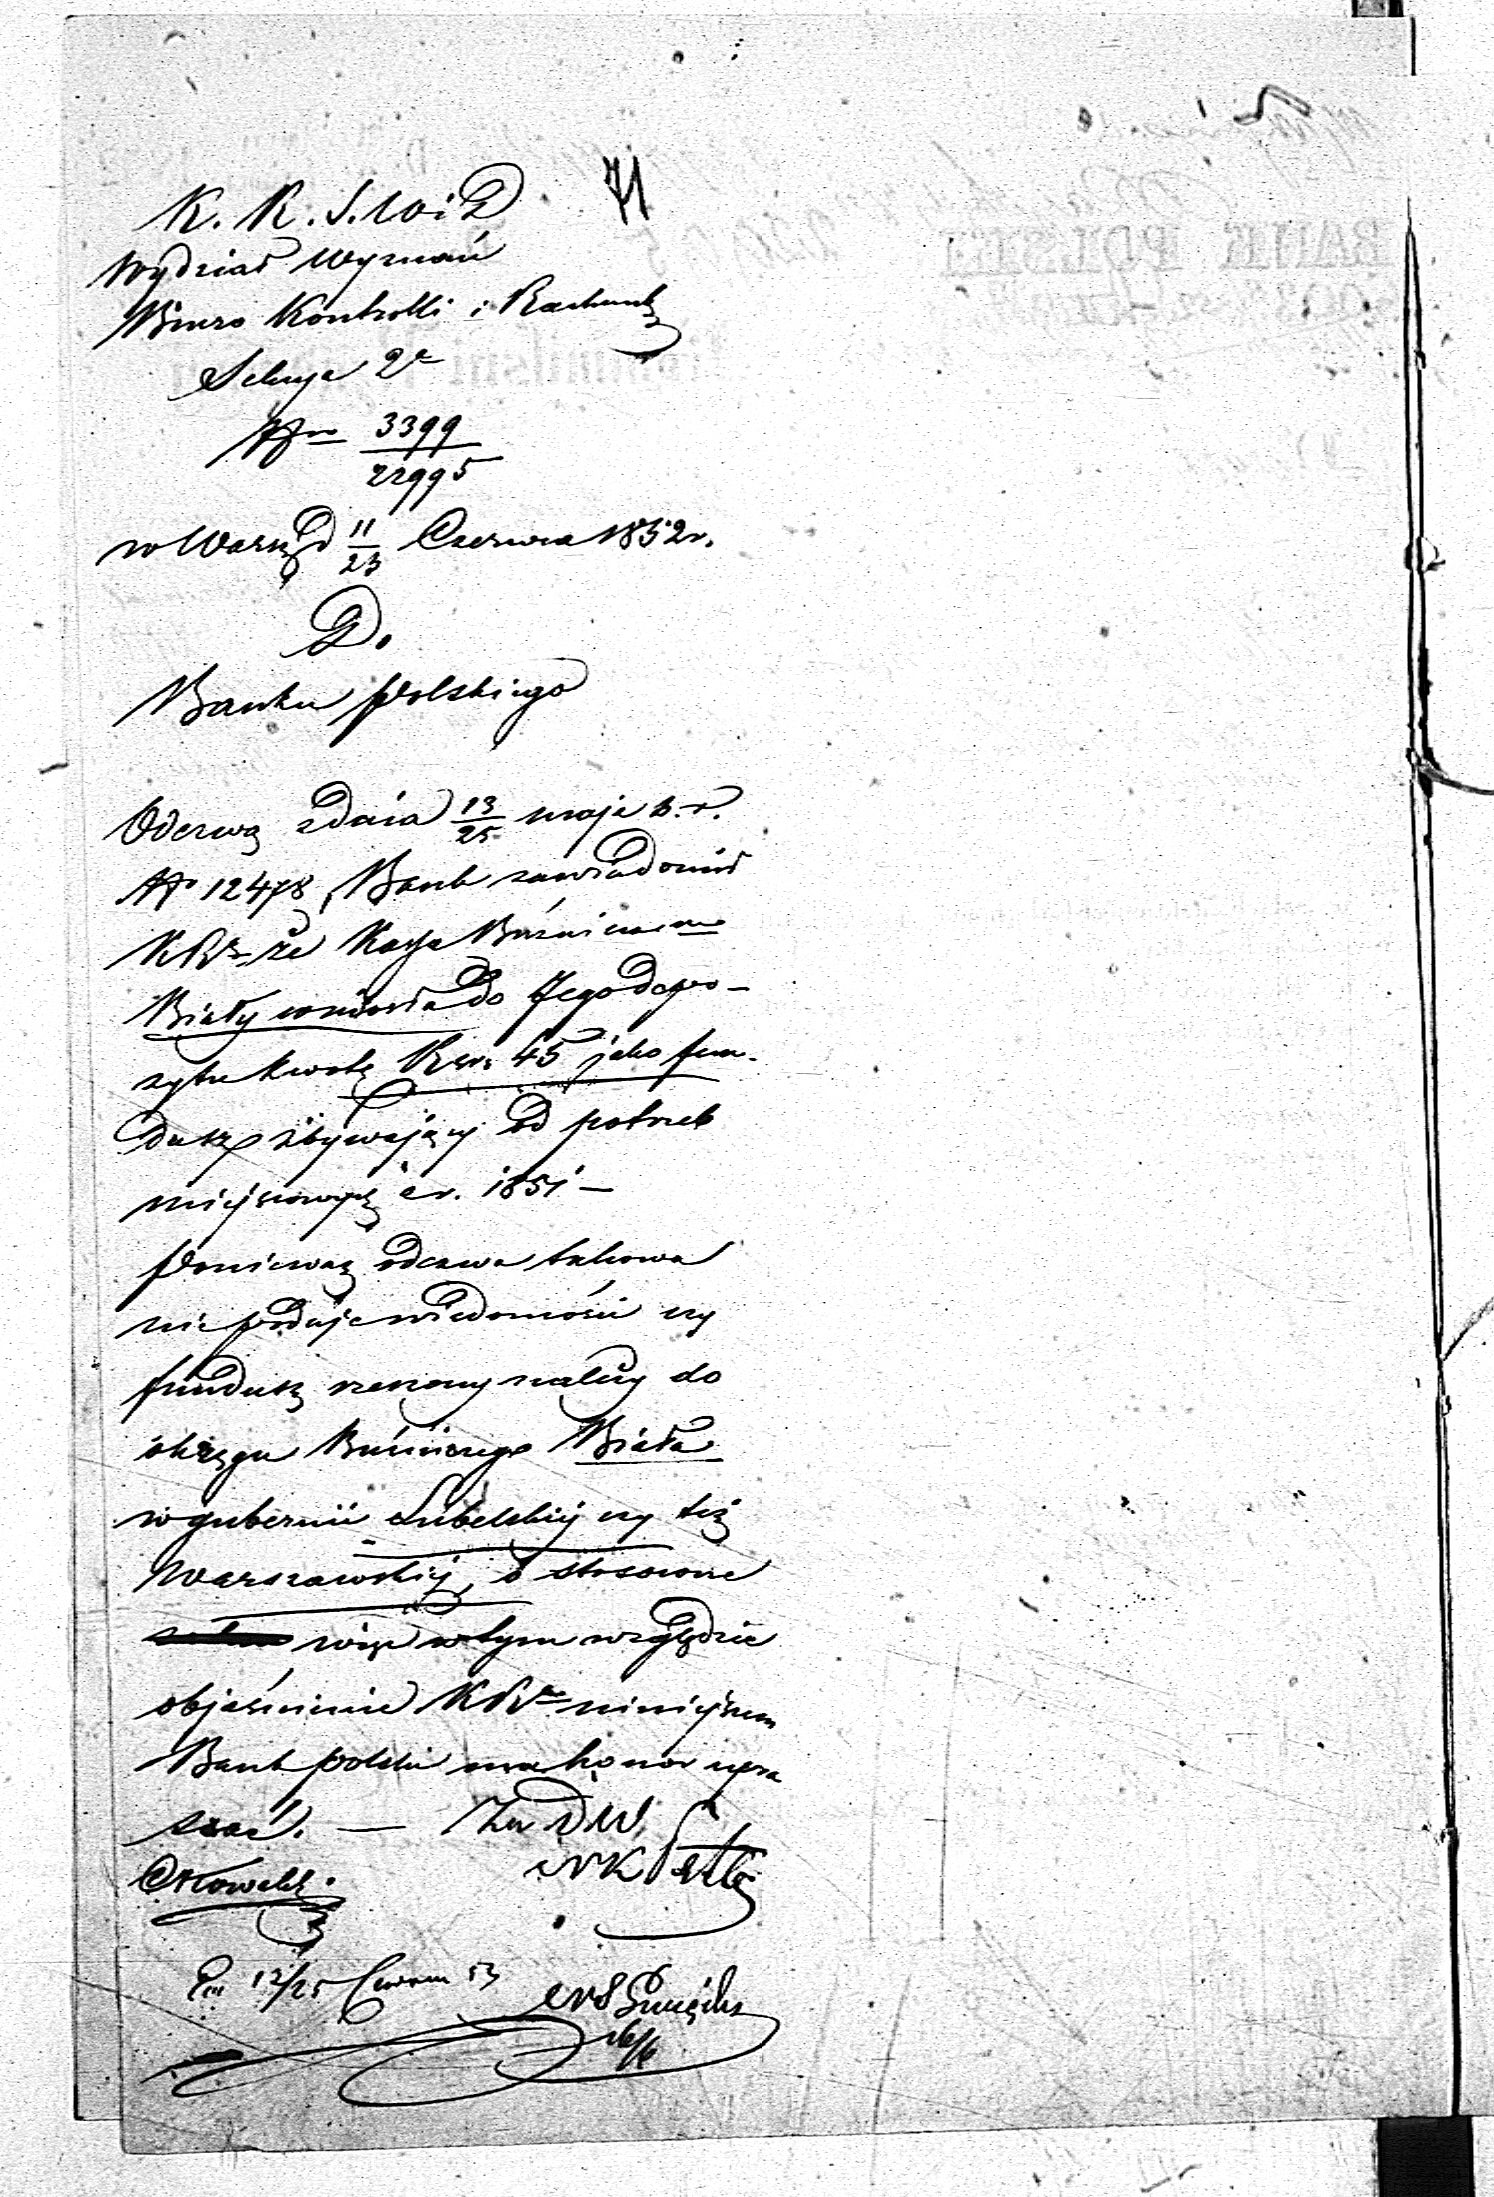 71
K. R. S. W i D
Wydział Wyznań
Biuro Kontrolli i Rachunk
Sekcya 2a
Nro 3399
22995
w Warsz. d 11/23 Czerwca 1852 r.
D.
Banku Polskiego
Odezwą z dnia 13/25 maja b. r.
No 12478, Bank zawiadomił
KRz. że Kassa Bóżnicza m
Biały wniosła do Jego depo-
zytu kwotę Rsr. 45 jako fun-
dusz zbywający od potrzeb
miejscowych z r. 1851 –
Ponieważ odezwa takowa
nie podaje wiadomości czy
fundusz rzeczony należy do
okręgu Bóżniczego Biała
w gubernii Lubelskiej czy też
Warszawskiej, o stosowne
więc w tym względzie
objaśnienie KRz niniejszem
Bank Polski ma honor upra
szać. — Za DW
NK
12/25 Czerwca
16/6